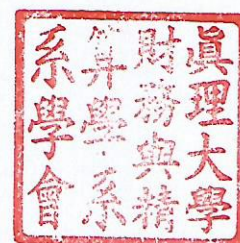 眞理大學
財務與精
算學系
系學會